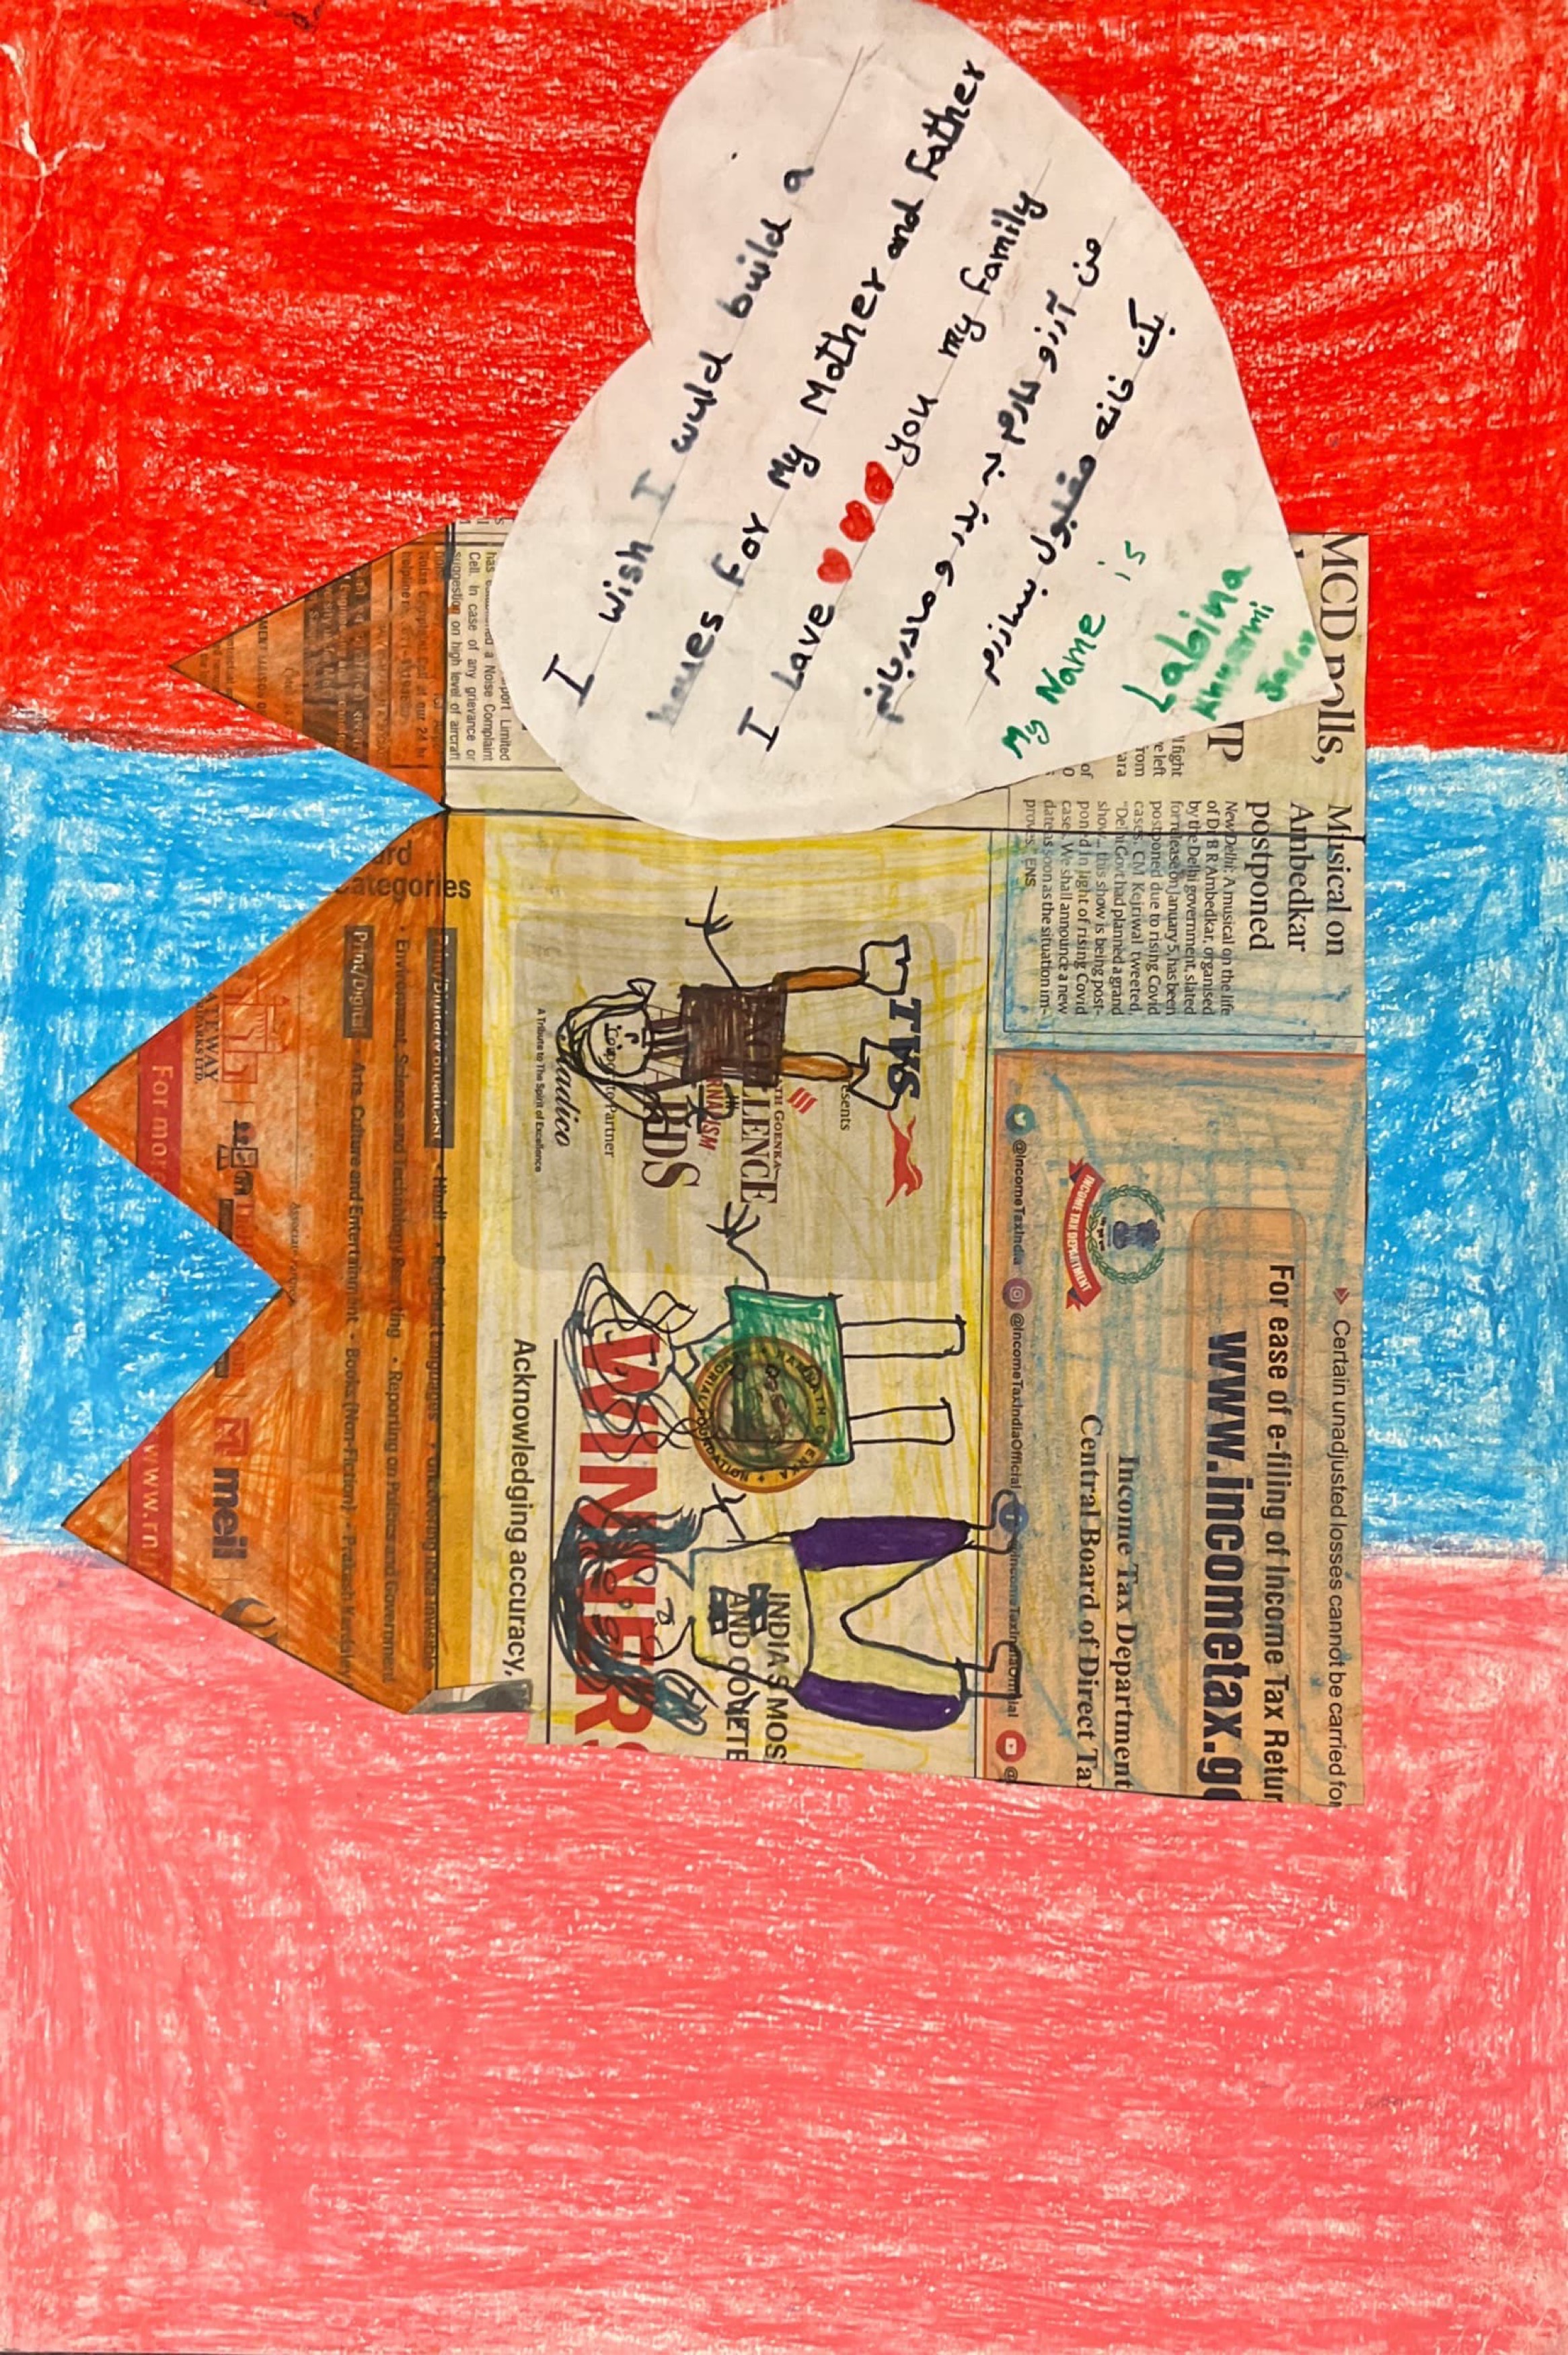 I wish I wuld build a
houes For My Mother and Father
I Lave you my family
من آرزو دارم به پدر و مادر جانم
یک خانه مقبول بسازم
My Name is
Labina
MCD polls,
Musical on
Ambedkar
postponed
New Delhi: A musical on the life
of Dr B R Ambedkar, organised
by the Delhi government, slated
for release on January 5, has been
postponed due to rising Covid
cases. CM Kejriwal tweeted,
"Delhi Govt had planned a grand
show... this show is being post-
poned in light of rising Covid
cases. We shall announce a new
date as soon as the situation im-
proves." ENS
l fight
e left
rom
ara
of
port Limited
a Noise Complaint
Cell. In case of any grievance or
suggestion on high level of aircraft
ard
Categories
Print/Digital & Broadcast • Hindi • Regional Languages
• Environment, Science and Technology Reporting • Reporting on Politics and Government
Print/Digital • Arts, Culture and Entertainment • Books (Non-Fiction) • Prakash Kardaley
For more
www.rn
meil
TVS
esents
LLENCE
RNALISM
RDS
Partner
A Tribute to The Spirit of Excellence
WINNERS
Acknowledging accuracy,
INDIA'S MOS
@IncomeTaxIndia
@IncomeTaxIndiaOfficial
INCOME TAX DEPARTMENT
Income Tax Department
Central Board of Direct Ta
For ease of e-filing of Income Tax Retur
www.incometax.go
Certain unadjusted losses cannot be carried for